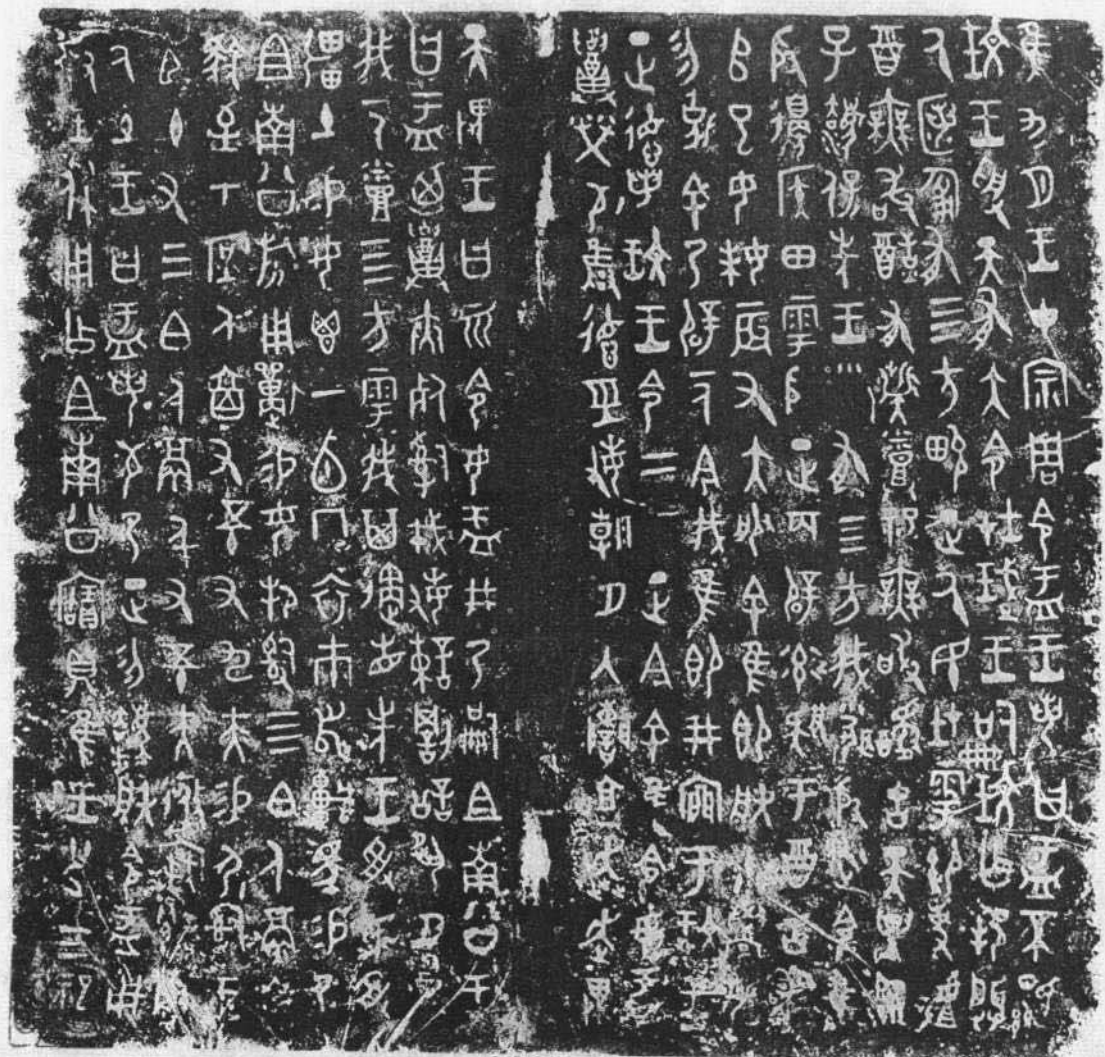 隹九月王才宗周令盂王若曰盂不顯
玟王受天有大令在珷王嗣玟乍邦闢
厥匿匍有四方畯正厥民在雩御事䖒
酉無敢酖有髭蒸祀無敢擾古天異臨
子灋保先王有四方我聞殷述令隹
殷邊侯田雩殷正百辟率肄于酉古喪
𠂤巳女妹辰又大服余隹即朕小學女
勿𠭯余乃辟一人今我隹即井㐭于玟王
正德若玟王令二三正今余隹令女盂
召榮敬雍德巠敏朝夕入讕享奔走畏
天畏王曰而令女盂井乃嗣且南公王
曰盂廼召夾死𤔲戎敏諫罰訟夙夕召
我一人烝四方雩我其遹省先王受民受
疆土易女鬯一卣冂衣巿舄車馬易乃
且南公旂用狩易女邦𤔲四白人鬲自
馭至于庶人六百又五十又九夫易尸𤔲王
臣十又三白人鬲千又五十夫遷自
厥土王曰盂若敬乃正勿灋朕令盂用
對王休用乍且南公寶鼎隹王廿又三祀